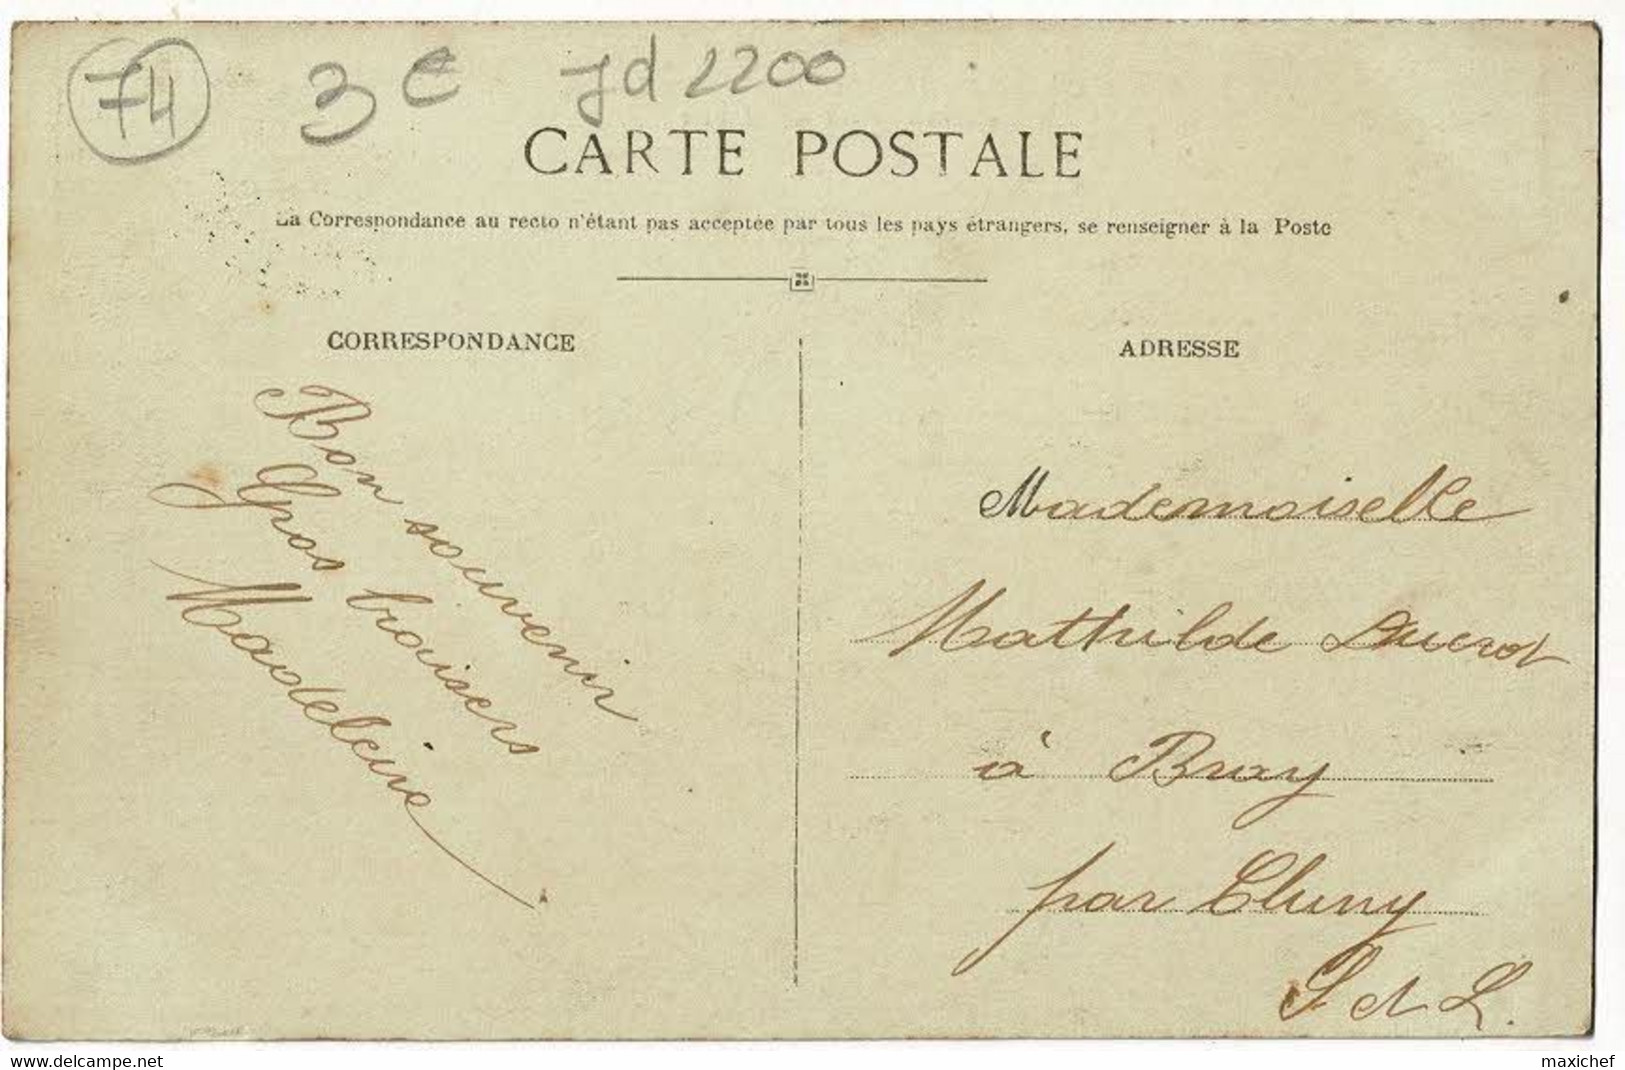 74 3 € Jd 2200
CARTE POSTALE
La Correspondance au recto n'étant pas acceptée par tous les pays étrangers, se renseigner à la Poste
CORRESPONDANCE
Bon souvenir
Gros baisers
Madeleine
ADRESSE
Mademoiselle
Mathilde Ducrot
à Bray
par Cluny
S et L.
www.delcampe.net
maxichef